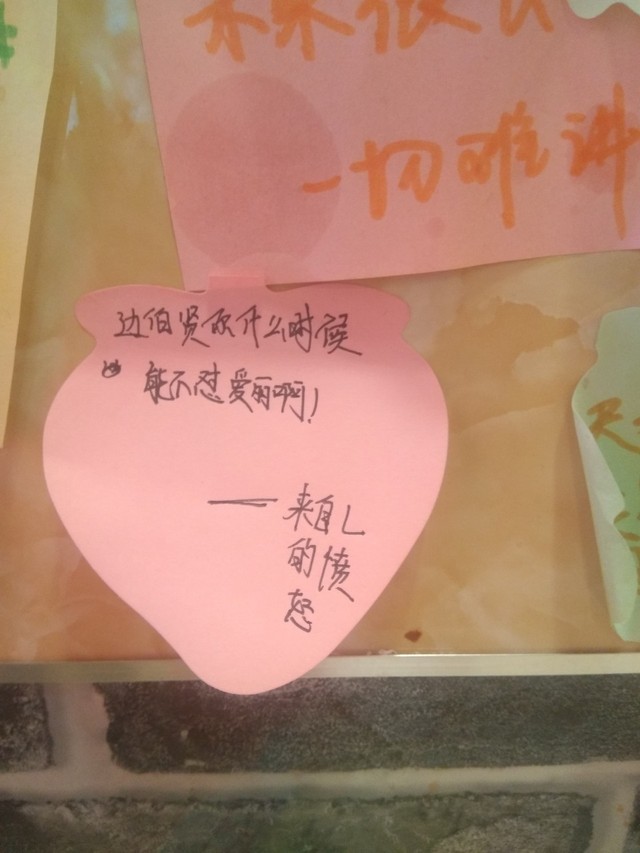 一切难讲
边伯贤你什么时候
能不怼爱丽啊!
——来自L
的愤
怒